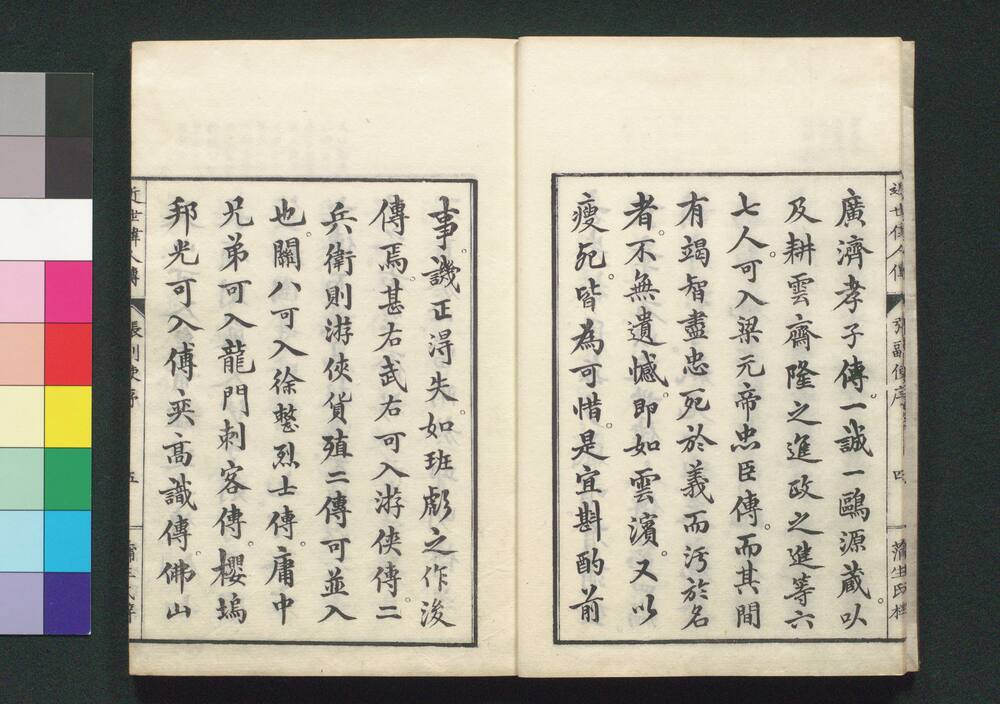 廣濟孝子傳。一誠一鷗源蔵。以
及耕雲齋隆之進政之進等六
七人。可入梁元帝忠臣傳。而其間
有竭智盡忠死於義而汚於名
者。不無遺憾。即如雲濱。又以
瘦死。皆為可惜。是宜斟酌前
事。譏正得失。如班彪之作後
傳焉。甚右武右可入游俠傳。二
兵衛則游俠貨殖二傳可並入
也。關八可入徐整烈士傳。庸中
兄弟可入龍門刺客傳。櫻塢
邦光可入傅奕高識傳。佛山
近世偉人傳
張副使序
四
蒲生氏梓
近世偉人傳
張副使序
五
蒲生氏梓